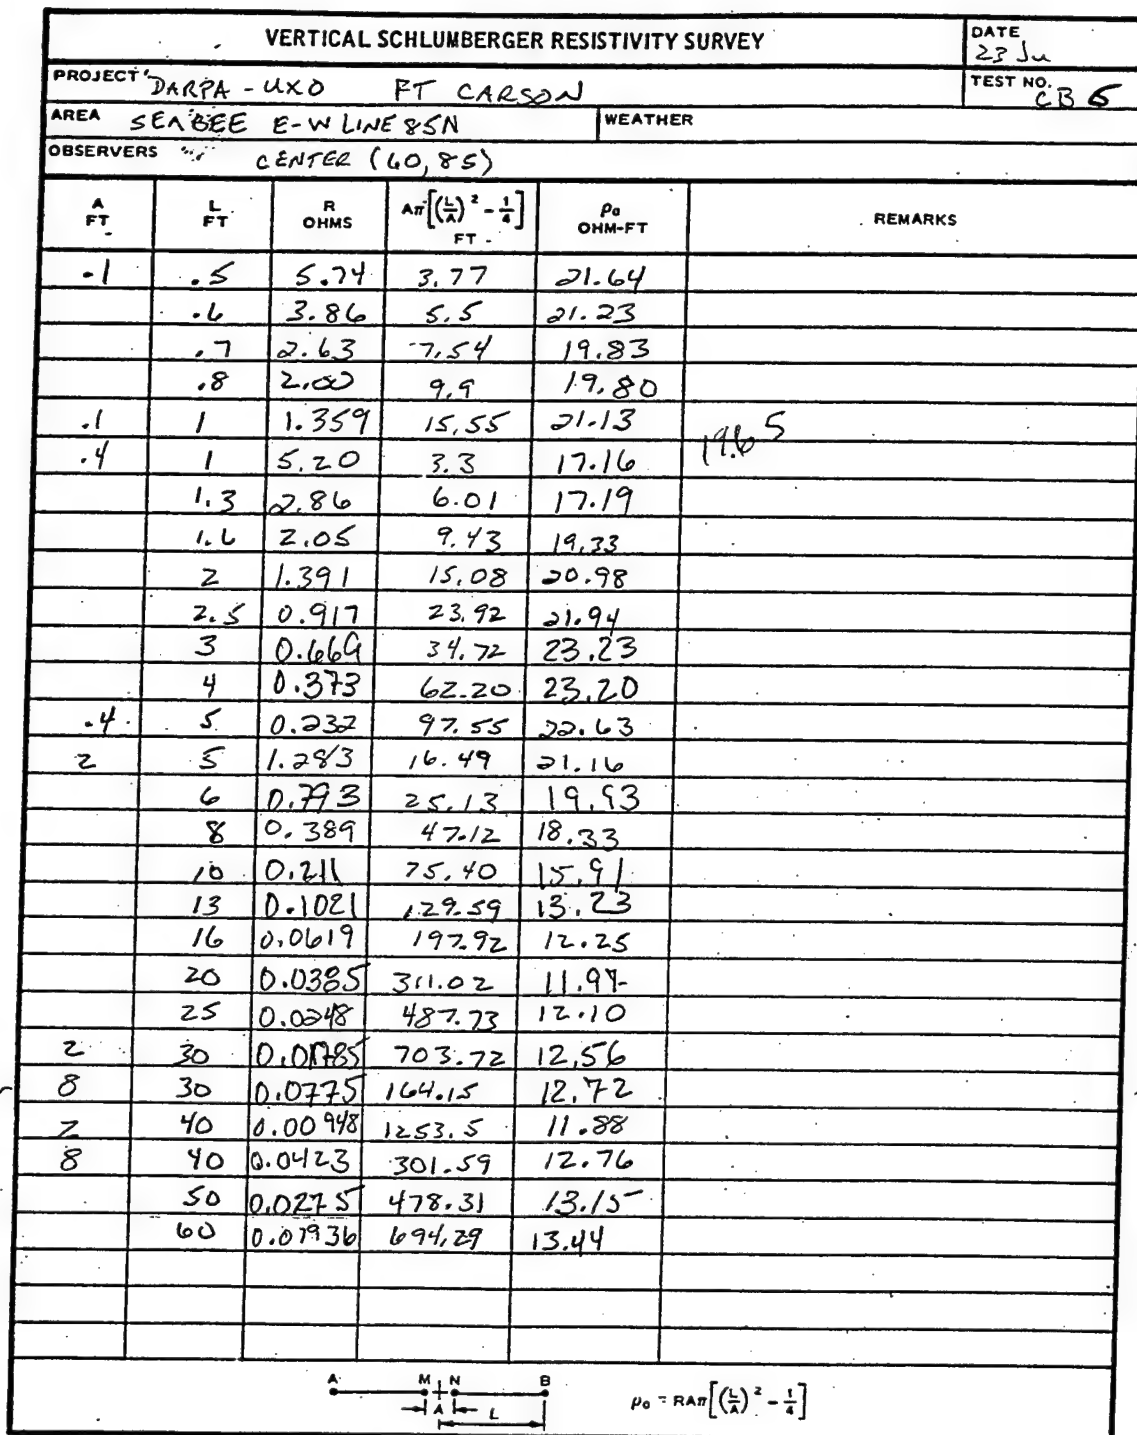 VERTICAL SCHLUMBERGER RESISTIVITY SURVEY
DATE
23 Ju
PROJECT DARPA - UXO FT CARSON
TEST NO. CB 5
AREA SEABEE E-W LINE 85N
WEATHER
OBSERVERS CENTER (60,85)
A FT L FT R OHMS Aπ[(L/A)² - 1/4] FT ρa OHM-FT REMARKS
.1 .5 5.74 3.77 21.64
.6 3.86 5.5 21.23
.7 2.63 7.54 19.83
.8 2.00 9.9 19.80
.1 1 1.359 15.55 21.13
.4 1 5.20 3.3 17.16 19.65
1.3 2.86 6.01 17.19
1.6 2.05 9.43 19.33
2 1.391 15.08 20.98
2.5 0.917 23.92 21.94
3 0.669 34.72 23.23
4 0.373 62.20 23.20
.4 5 0.232 97.55 22.63
2 5 1.283 16.49 21.16
6 0.793 25.13 19.93
8 0.389 47.12 18.33
10 0.211 75.40 15.91
13 0.1021 129.59 13.23
16 0.0619 197.92 12.25
20 0.0385 311.02 11.97
25 0.0248 487.73 12.10
2 30 0.01785 703.72 12.56
8 30 0.0775 164.15 12.72
2 40 0.00948 1253.5 11.88
8 40 0.0423 301.59 12.76
50 0.0275 478.31 13.15
60 0.01936 694.29 13.44
A M N B
A L
ρa = RAπ[(L/A)² - 1/4]